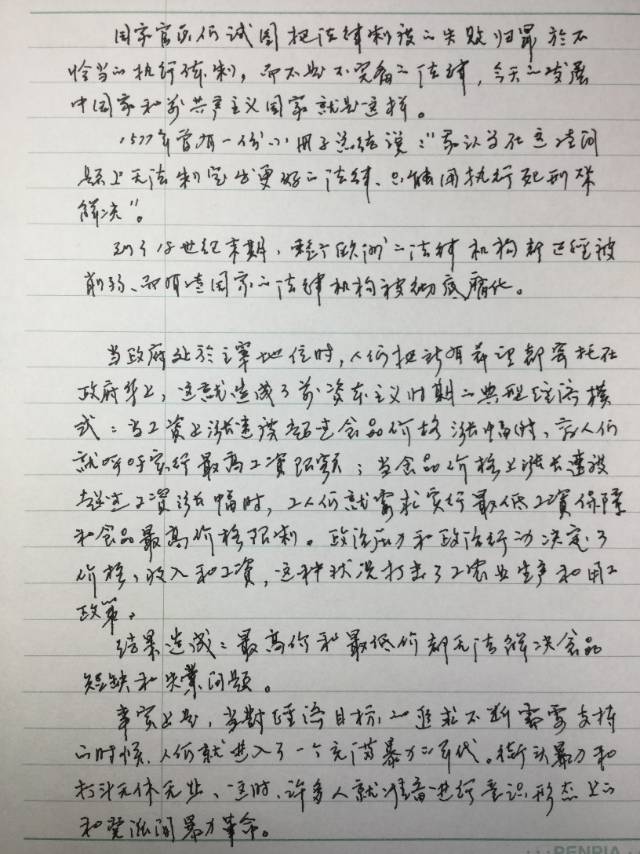 国家官员们试图把法律制设的失败归罪於不
恰当的执行建制，而不是不完备的法律，今天的发展
中国家和前共产主义国家就是这样。
1577年曾有一份小册子总结说："我认为在这样问
题上无法制定出更好的法律、只能用执行死刑来
解决"。
到了18世纪末期，整个欧洲的法律机构都已经被
削弱、而有些国家的法律机构被彻底腐化。
当政府处於主宰地位时，人们把所有希望都寄托在
政府身上，这就造成了前资本主义时期的典型经济模
式：当工资上涨速读超过食品价格涨幅时，富人们
就呼吁实行最高工资限额；当食品价格上涨速设
超过工资涨幅时，工人们就需求实行最低工资保障
和食品最高价格限制。政治压力和政治行动决定了
价格、收入和工资，这种状况打击了工农业生产和用工
政策。
结果造成：最高价和最低价都无法解决食品
短缺和失業问题。
事实上是，当對经济目标的追求不断需要支持
的时候，人们就进入了一个充满暴力的年代。街头暴力和
打斗无休无止、这时，许多人就准备进行意识形态上的
和党派间暴力革命。
PENPIA